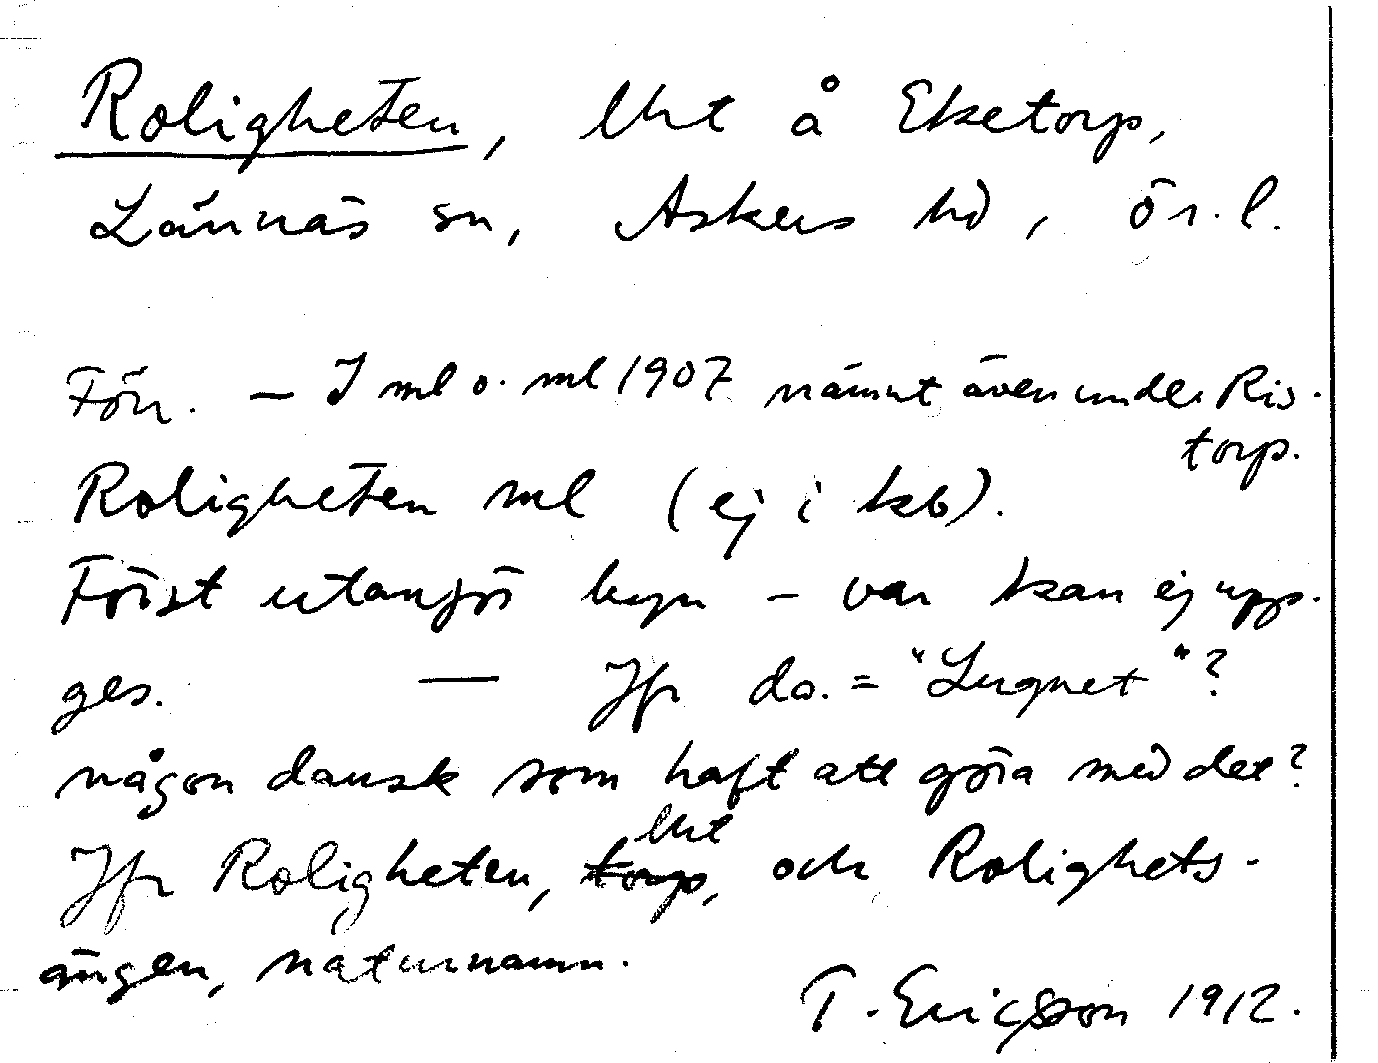 Roligheten, lht å Eketorp,
Lännäs sn, Askers hd, ör. l.
Förr. — I ml o. ml 1907 nämnt även under Ris-
torp.
Roligheten ml (ej i kb).
Först utanför byn – var kan ej upp-
ges. — Jfr da. = "Lugnet"?
någon dansk som haft att göra med det?
lht
Jfr Roligheten, torp, och Rolighets-
ängen, naturnamn.
T. Ericsson 1912.